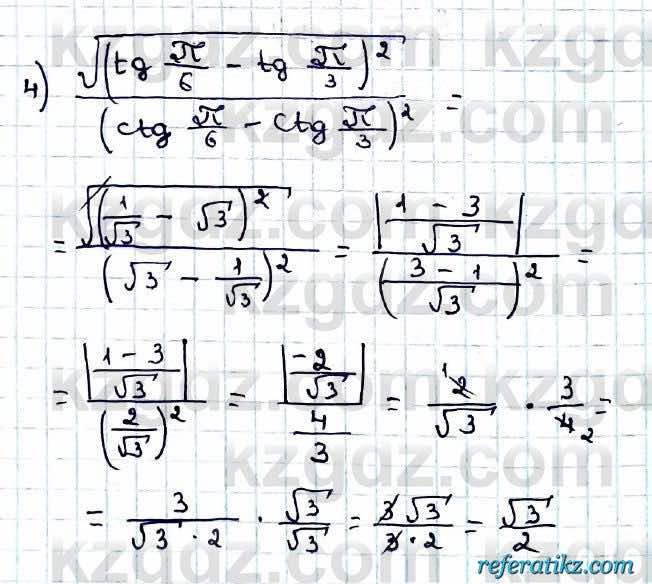 4) √(tg π/6 − tg π/3)² / (ctg π/6 − ctg π/3)² =
= √(1/√3 − √3)² / (√3 − 1/√3)² = |1 − 3 / √3| / (3 − 1 / √3)² =
= |1 − 3 / √3| / (2/√3)² = |−2/√3| / 4/3 = ¹2/√3 · 3/4₂ =
= 3/√3 · 2 · √3/√3 = 3√3/3 · 2 = √3/2
kzgdz.com
referatikz.com